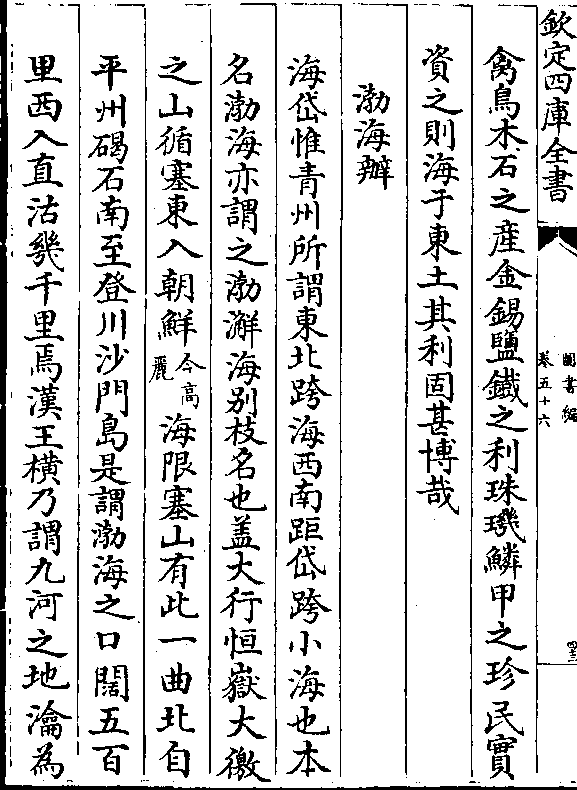 欽定四庫全書
圖書編
卷五十六
四三
禽鳥木石之産金錫鹽鐵之利珠璣鱗甲之珍民實
資之則海于東土其利固甚博哉
渤海辨
海岱惟青州所謂東北跨海西南距岱跨小海也本
名渤海亦謂之渤澥海别枝名也盖大行恒嶽大徼
之山循塞東入朝鮮今高麗海限塞山有此一曲北自
平州碣石南至登川沙門島是謂渤海之口闊五百
里西入直沽幾千里焉漢王横乃謂九河之地瀹為